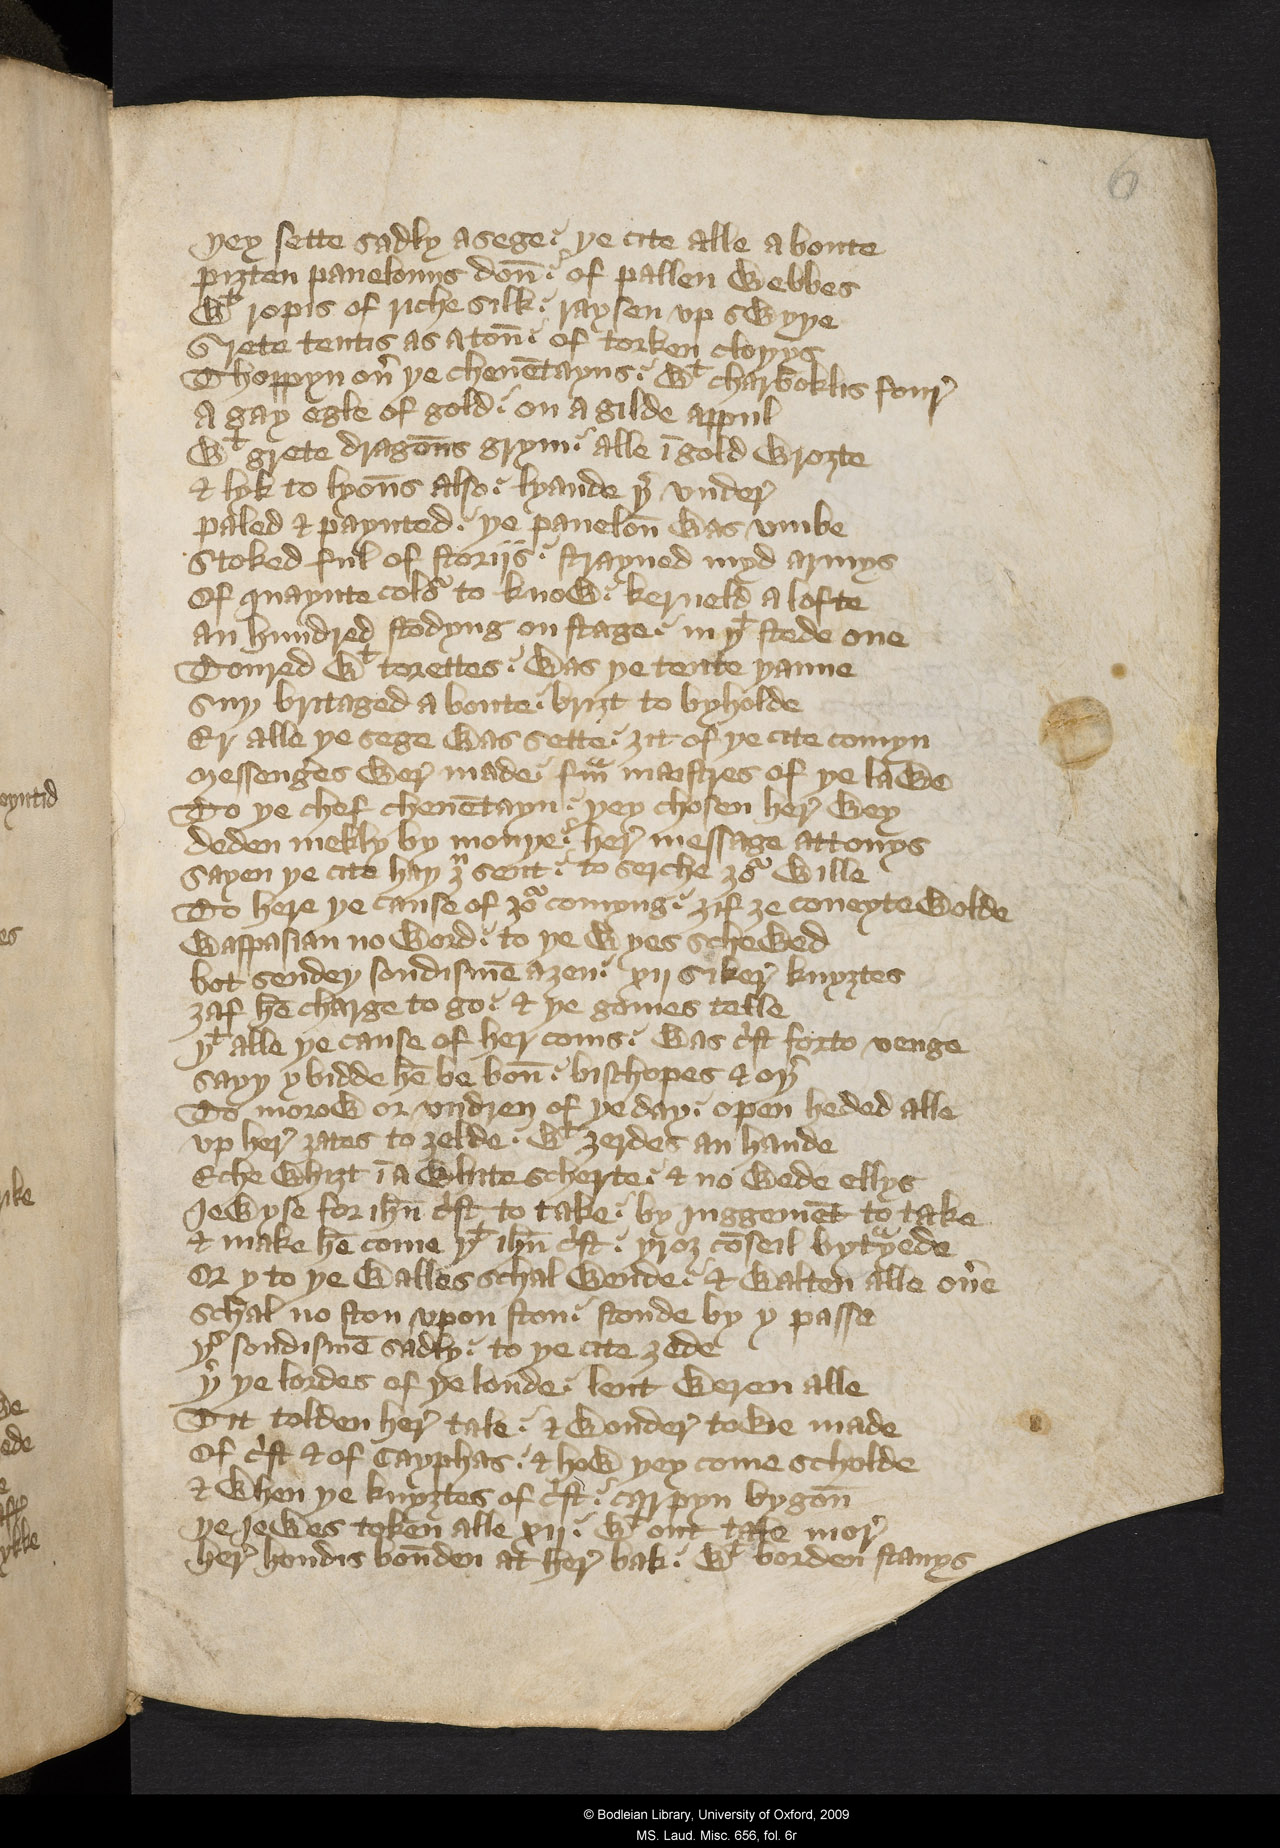 6
yey sette sadly a sege ye cite alle a boute
piȝten pauelouns doū of pallen webbes
wt ropis of riche silk raysen vp swyye
Grete tentis as a toū of torken cloyys
Choppyn ou͛ ye cheuētayns wt charboklis four͛
A gay egle of gold on a gilde appul
wt grete dragoūs grym alle ī gold wroȝte
& lyk to lyoūs also lyande y͛ vnder͛
paled & paynted ye paueloū was vmbe
Stoked ful of storijs stayned myd armys
Of quaynte colo͛ to know kerueld a lofte
an hundred stōdyng on stage in yt stede one
Toured wt torettes was ye tente yanne
Suy britaged a boute briȝt to byholde
Er alle ye sege was sette ȝit of ye cite comyn
Messenge͛s wer͛ made fra͛m maistres of ye lawe
To ye chef cheuētayn yey chosen her͛ wey
deden mekly by mouye her͛ message attonys
Sayen ye cite hay ȝou sent to serche ȝo͛ wille
To here ye cause of ȝo͛ comyng ȝif ȝe coueyte wolde
Waspasian no word to ye wyes schewed
bot sendey sondismē aȝen xij siker͛ knyȝtes
ȝaf hē charge to go & ye gomes telle
yt alle ye cause of her come was c͛st forto venge
Sayy y bidde hē be boū bischopes & oy͛
To morow or vndren of ye day open heded alle
vp her͛ ȝates to ȝelde wt ȝerdes an hande
Eche whiȝt ī a white scherte & no wede ellys
Jewyse for ihū c͛st to take by juggemēt to take
& make hē come yt ihū c͛st yroȝ cōseil bytrayede
Or y to ye walles schal wende & walten alle ou͛e
schal no ston vpon ston stonde by y passe
ys sondismē sadly to ye cite ȝede
y͛ ye lordes of ye londe lent weren alle
Tit tolden her͛ tale & wonder͛ towe made
Of c͛st & of Cayphas & how yey come scholde
& when ye knyȝtes of c͛st carpyn bygoū
ye Jewes token alle xij wt out tale mor͛
her͛ hondis boūden at her͛ bak wt borden stauys
© Bodleian Library, University of Oxford, 2009
MS. Laud. Misc. 656, fol. 6r